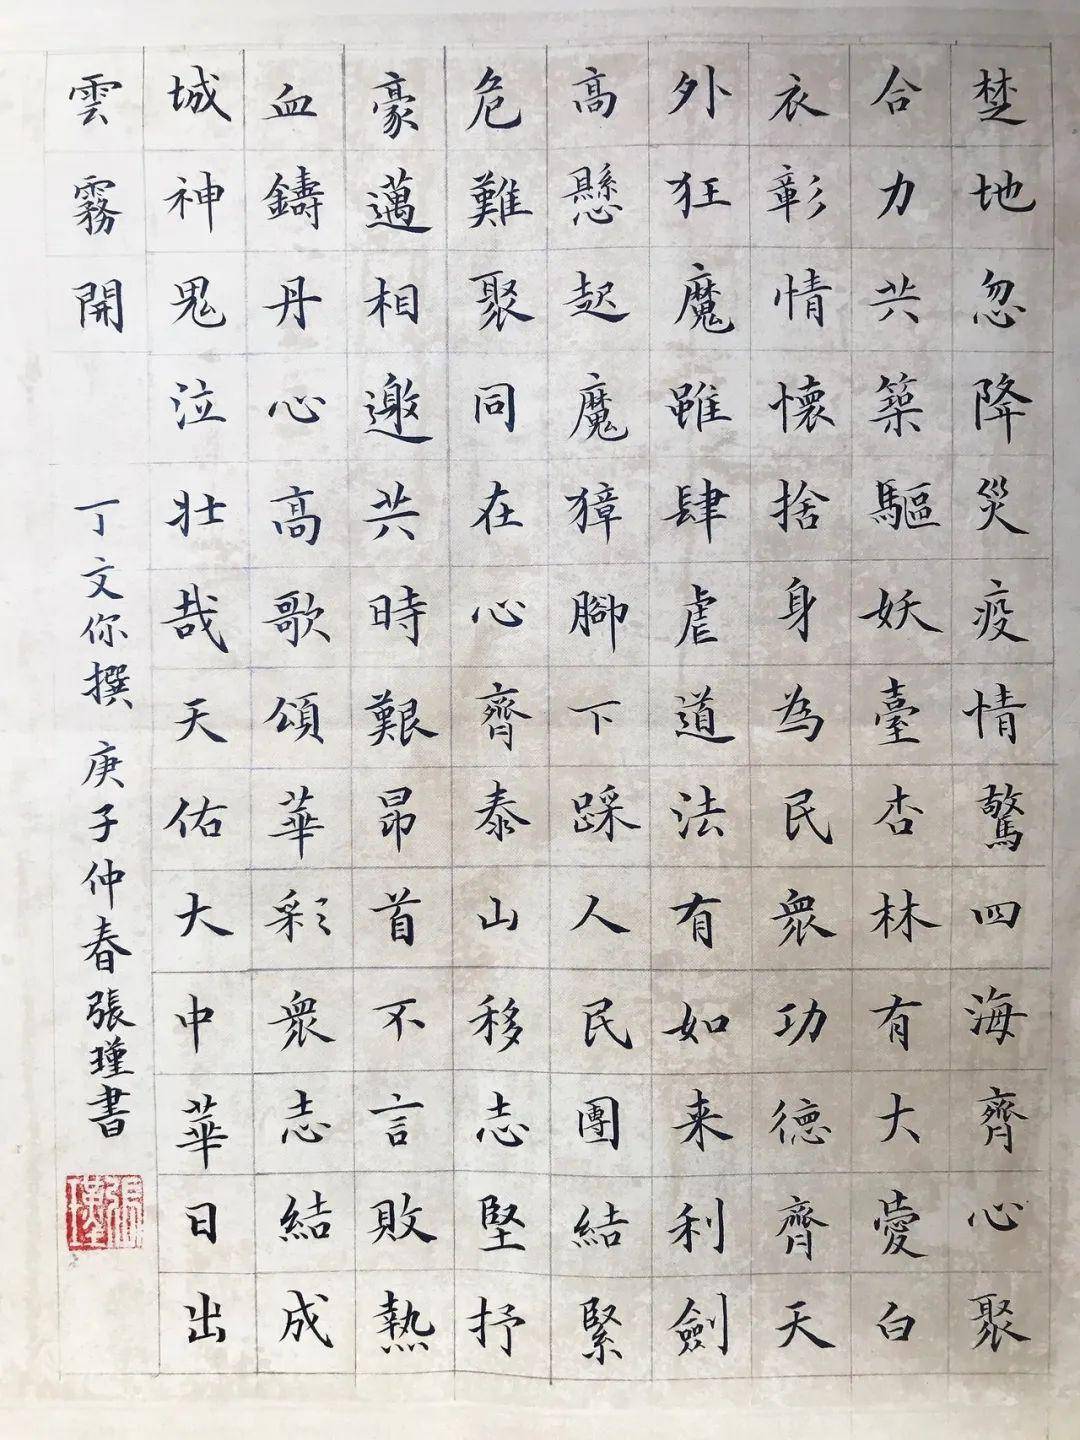 楚地忽降災疫情驚四海齊心聚
合力共築驅妖臺杏林有大愛白
衣彰情懷捨身為民眾功德齊天
外狂魔雖肆虐道法有如来利劍
高懸起魔獐腳下踩人民團結緊
危難聚同在心齊泰山移志堅抒
豪邁相邀共時艱昂首不言敗熱
血鑄丹心高歌頌華彩眾志結成
城神鬼泣壯哉天佑大中華日出
雲霧開
丁文你撰 庚子仲春張瑾書
張瑾